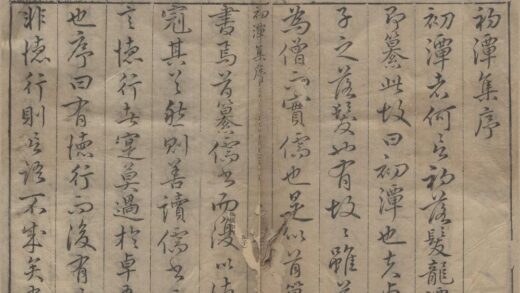 初潭集序
初潭者何言初落髮龍
即纂此故曰初潭也夫卓
子之落髮也有故〻雖落
為僧而實儒也是以首纂
初潭集序
書焉首纂儒書而復以德
冠其首然則善讀儒書
言德行者實莫過於卓吾
也序曰有德行而後有言
非德行則言語不成矣